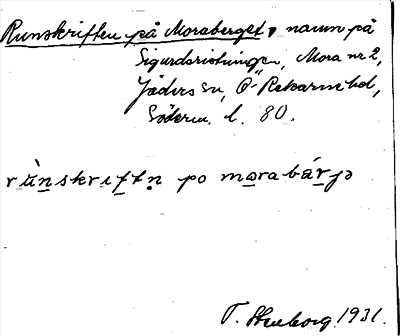 Runskriften på Moraberget, namn på
Sigurdsristningen, Mora nr 2,
Jäders sn, Ö-Rekarne hd,
Söderm. l. 80.
rùnskrɩftn̥ po morabárjə
T. 1931.